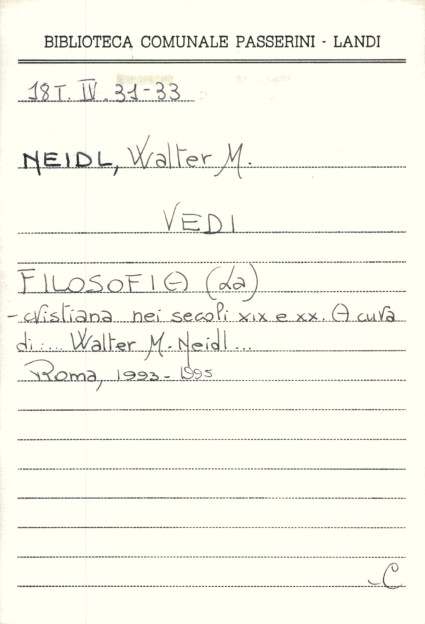 BIBLIOTECA COMUNALE PASSERINI - LANDI
18T. IV. 31-33
NEIDL, Walter M.
VEDI
FILOSOFIA (La)
- cristiana nei secoli XIX e XX. A cura
di ... Walter M. Neidl ...
Roma, 1993-1995
C